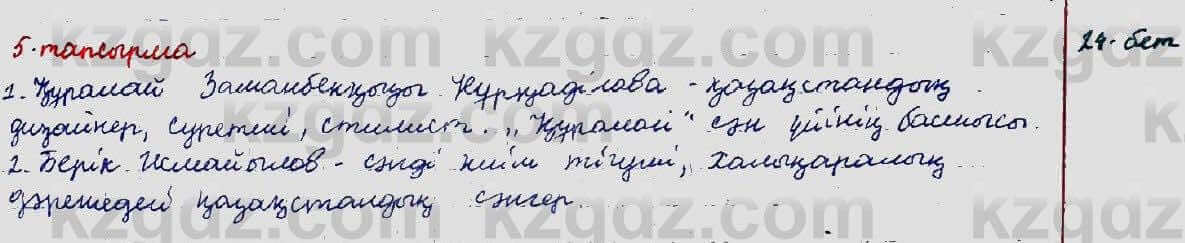 5-тапсырма
24-бет
1. Құралай Заманбекқызы Нұрқаділова - қазақстандық
дизайнер, суретші, стилист. "Құралай" сән үйінің басшысы.
2. Берік Исмайылов - сәнді киім тігуші, халықаралық
дәрежедегі қазақстандық сәнгер.
kzgdz.com